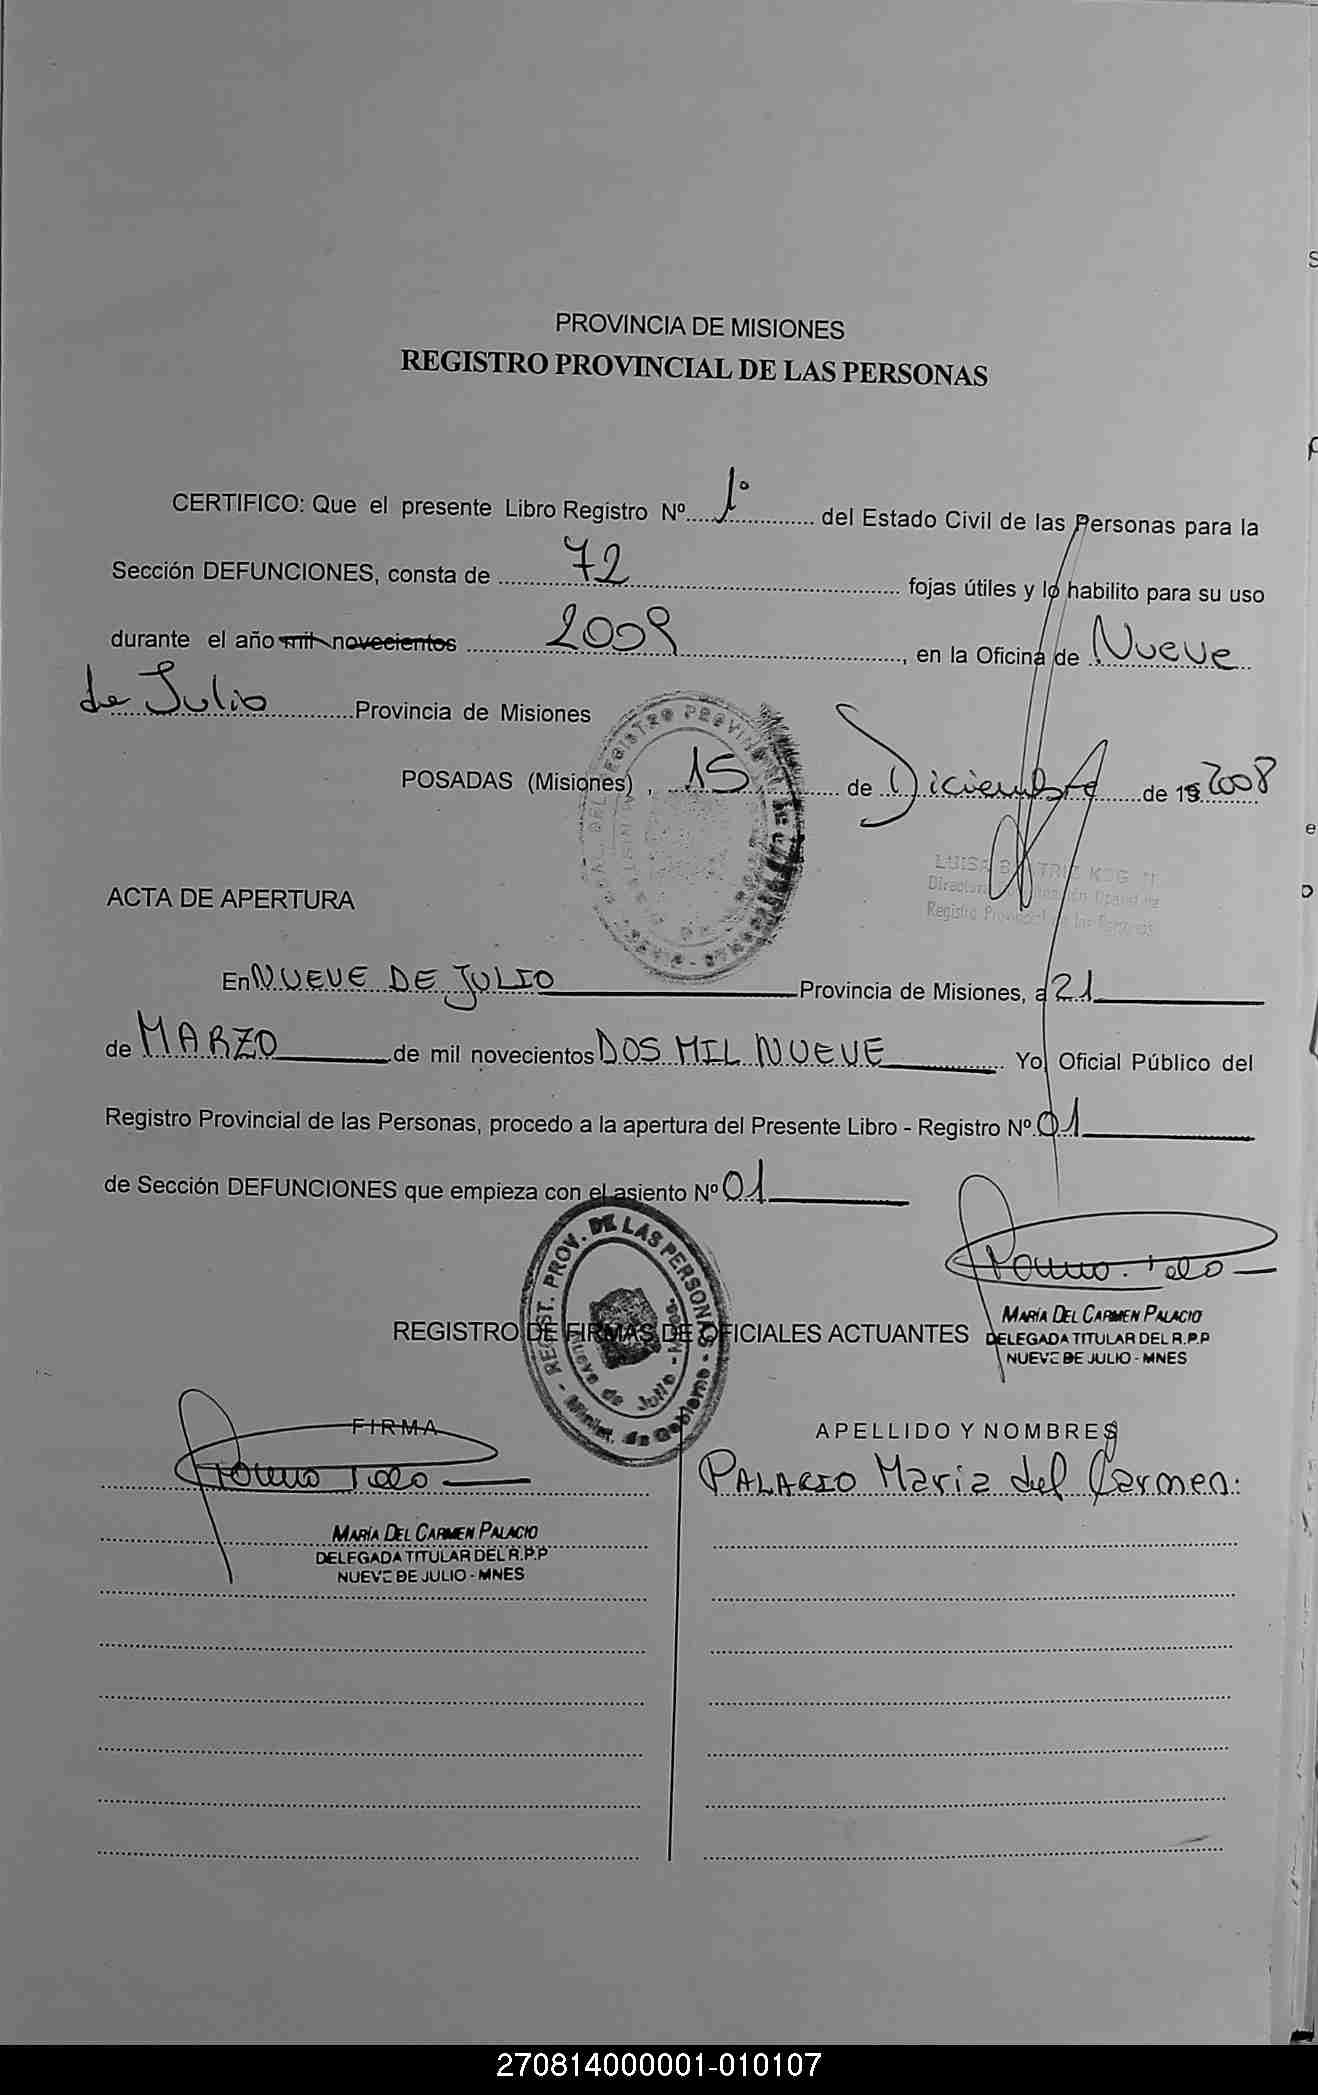 PROVINCIA DE MISIONES
REGISTRO PROVINCIAL DE LAS PERSONAS
CERTIFICO: Que el presente Libro Registro Nº 1º del Estado Civil de las Personas para la
Sección DEFUNCIONES, consta de 72 fojas útiles y lo habilito para su uso
durante el año mil novecientos 2009, en la Oficina de Nueve
de Julio Provincia de Misiones
POSADAS (Misiones), 15 de Diciembre de 19 2008
LUISA
ACTA DE APERTURA
En NUEVE DE JULIO Provincia de Misiones, a 21
de MARZO de mil novecientos DOS MIL NUEVE Yo Oficial Público del
Registro Provincial de las Personas, procedo a la apertura del Presente Libro - Registro Nº 01
de Sección DEFUNCIONES que empieza con el asiento Nº 01
REGIST. PROV. DE LAS PERSONAS - Minist. de Gobierno -
Nueve de Julio - Mnes.
MARÍA DEL CARMEN PALACIO
DELEGADA TITULAR DEL R.P.P
NUEVE DE JULIO - MNES
REGISTRO DE FIRMAS DE OFICIALES ACTUANTES
FIRMA APELLIDO Y NOMBRES
PALACIO María del Carmen.
MARÍA DEL CARMEN PALACIO
DELEGADA TITULAR DEL R.P.P
NUEVE DE JULIO - MNES
270814000001-010107